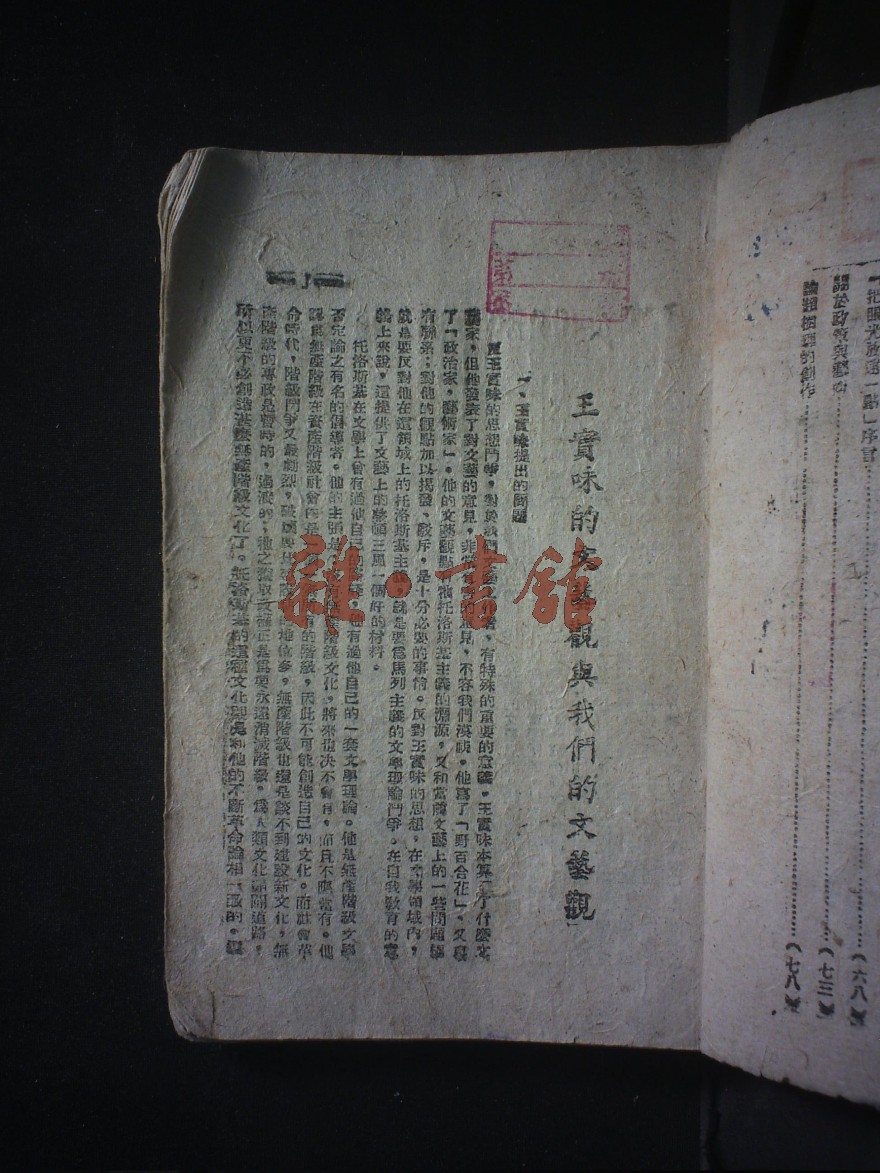 「把眼光放遠一點」序言……………………（六八）
關於政策與藝術……………………（七三）
論趙樹理的創作……………………（七八）
王實味的文藝觀與我們的文藝觀
一、王實味提出的問題
王實味的思想鬥爭，對於我們文藝工作者，有特殊的重要的意義。王實味本算不了什麼文
藝家，但他發表了對文藝的意見，非常有害的意見，不容我們漠視。他寫了「野百合花」，又寫
了「政治家，藝術家」。他的文藝觀點，有托洛斯基主義的淵源，又和當前文藝上的一些問題
有聯系；對他的觀點加以揭發、駁斥，是十分必要的事情。反對王實味的思想，在文學領域內，
就是要反對他在這領域上的托洛斯基主義，就是要為馬列主義的文學理論鬥爭。在自我教育的意
義上來說，這提供了文藝上的整頓三風一個好的材料。
托洛斯基在文學上曾有過他自己的，有過他自己的一套文學理論。他是無產階級文學
否定論之有名的倡導者。他的主張是，無產階級文化，將來也決不會有，而且不應當有。他
認為無產階級在資產階級社會內是有的階級，因此不可能創造自己的文化。而社會革
命時代，階級鬥爭又最劇烈，破壞要比建設的地位多，無產階級也還是談不到建設新文化，無
產階級的專政是暫時的，過渡的，他之獲取政權正是為要永遠消滅階級，為人類文化開闢道路，
所以更不必創造甚麼無產階級文化了。托洛斯基的這種文化觀是和他的不斷革命論相一致的。
一
雜·書館